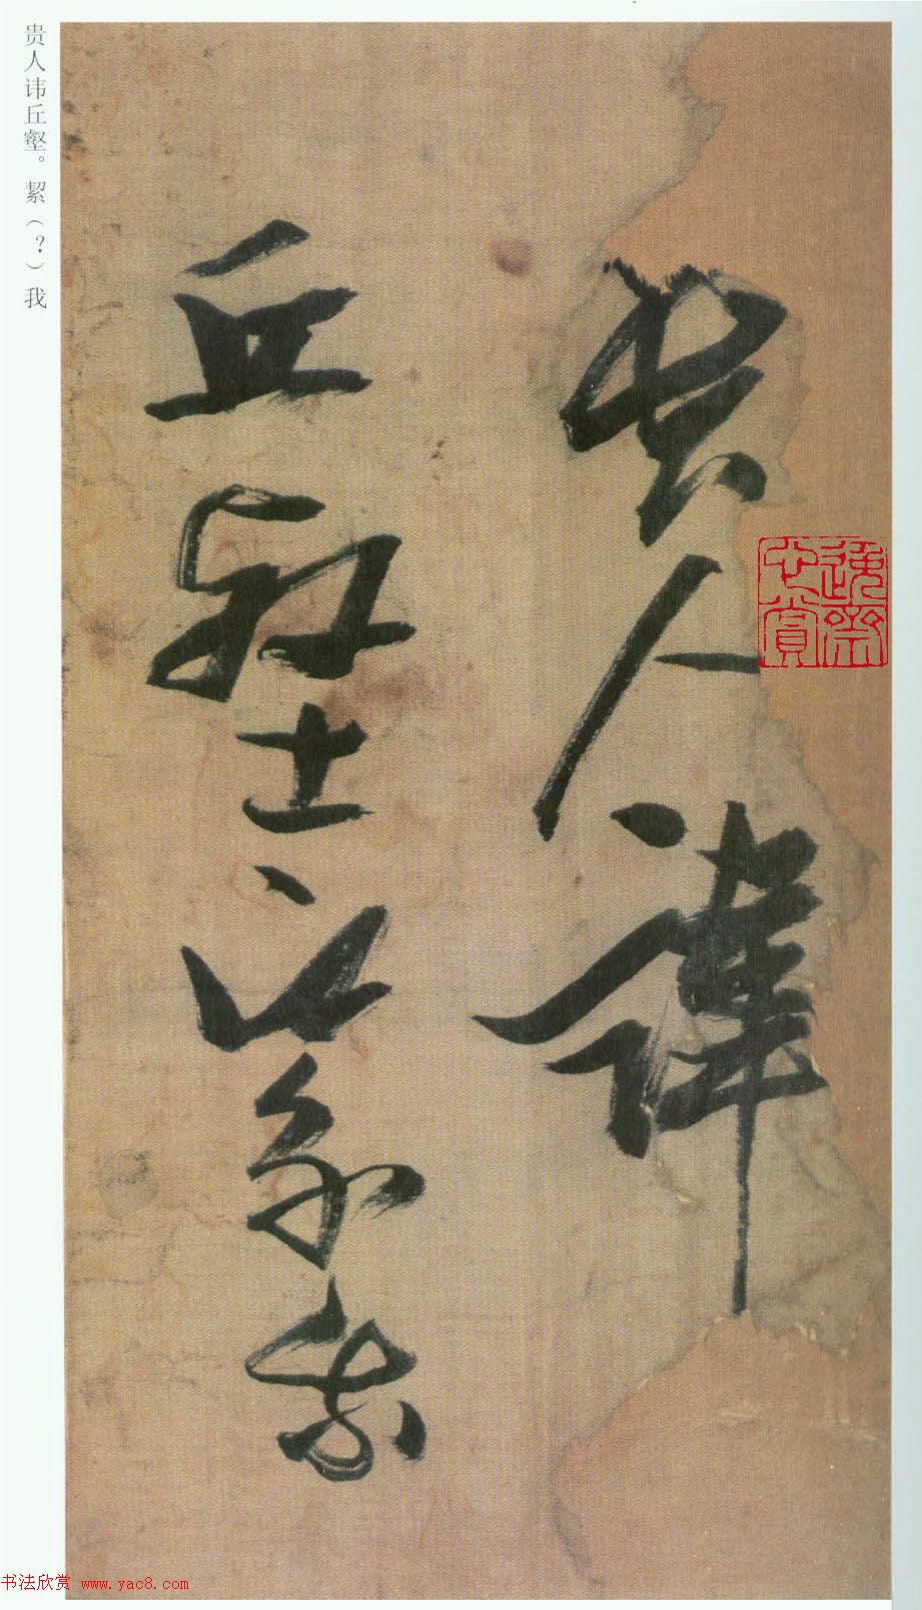 贵人讳丘壑。絜（？）我
貴人諱
丘壑
我
书法欣赏 www.yac8.com